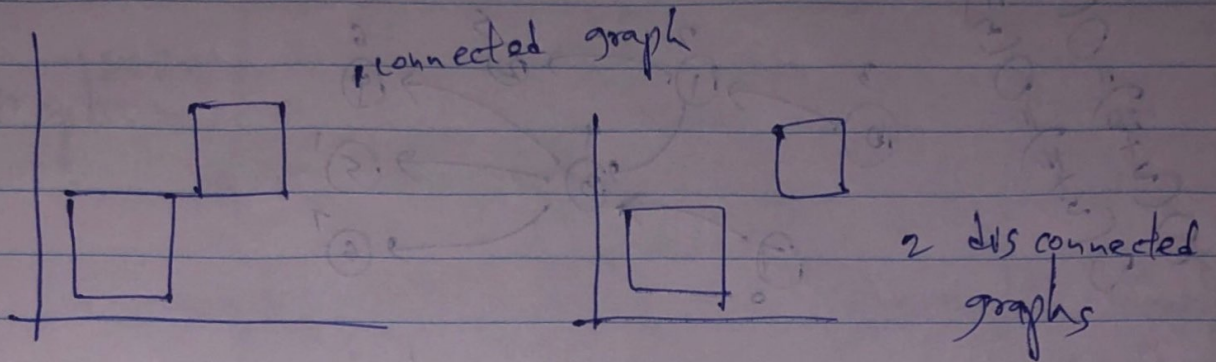 connected graph
2 disconnected
graphs